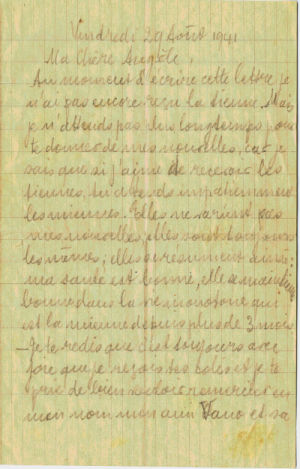 Vendredi 29 Août 1941
Ma Chère Angèle,
Au moment d'écrire cette lettre je
n'ai pas encore reçu la tienne. Mais
je n'attends pas plus longtemps pour
te donner de mes nouvelles, car je
sais que si j'aime de recevoir les
tiennes, tu attends impatiemment
les miennes. Elles ne varient pas
mes nouvelles, elles sont toujours
les mêmes; elles se résument ainsi:
ma santé est bonne, elle se maintient
bonne dans la vie monotone qui
est la mienne depuis plus de 3 mois
- Je te redis que c'est toujours avec
joie que je reçois tes colis et je te
prie de bien vouloir remercier en
mon nom mon ami et sa